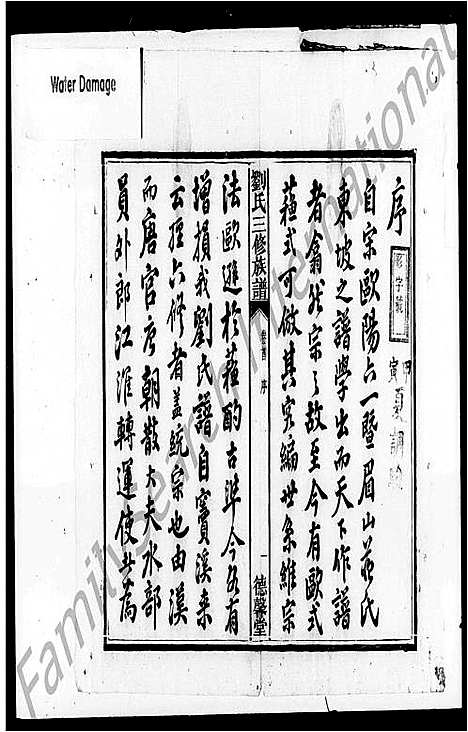 Water Damage
序
自宗歐陽六一暨眉山蘇氏
東坡之譜學出而天下作譜
者翕然宗之故至今有歐式
蘓式可做其實編世系維宗
劉氏三修族譜
卷首 序
一
德馨堂
法歐進於蘓酌古準今各有
增損我劉氏譜自寶溪来
云經六修者盖統宗也由溪
而唐官唐朝散大夫水部
員外郎江淮轉運使
FamilySearch International